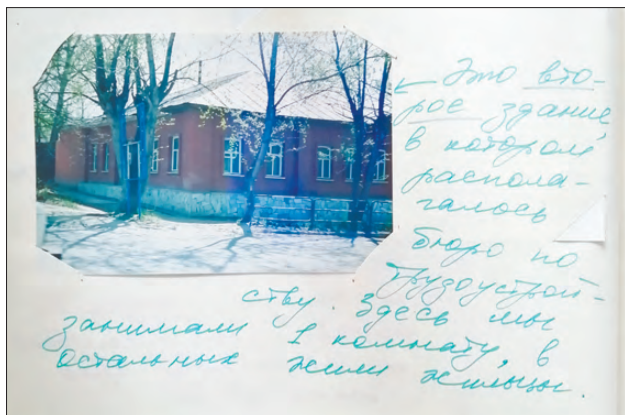 ← Это вто-
рое здание,
в котором
распола-
галось
бюро по
трудоустрой-
ству. Здесь мы
занимали 1 комнату, в
остальных жили жильцы.